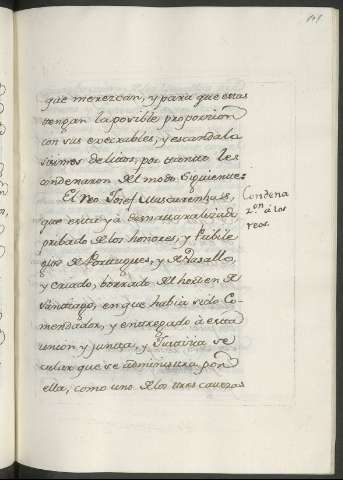 que merezcan, y para que estas
tengan la posible proporcion
con sus execrables, y escandalo
sisimos delitos, por tanto les
condenaron del modo siguiente:
El reo Josef Mascarenhas,
que está ya desnaturalizado
pribado de los honores, y Pribile
gios de Portugues, y de Vasallo,
y criado, borrado del horden de
Santiago, en que habia sido Co-
mendador, y entregado à esta
union y junta, y Justicia se
cular que se administra por
ella, como uno de los tres cavezas
Condena
2.on à los
reos.